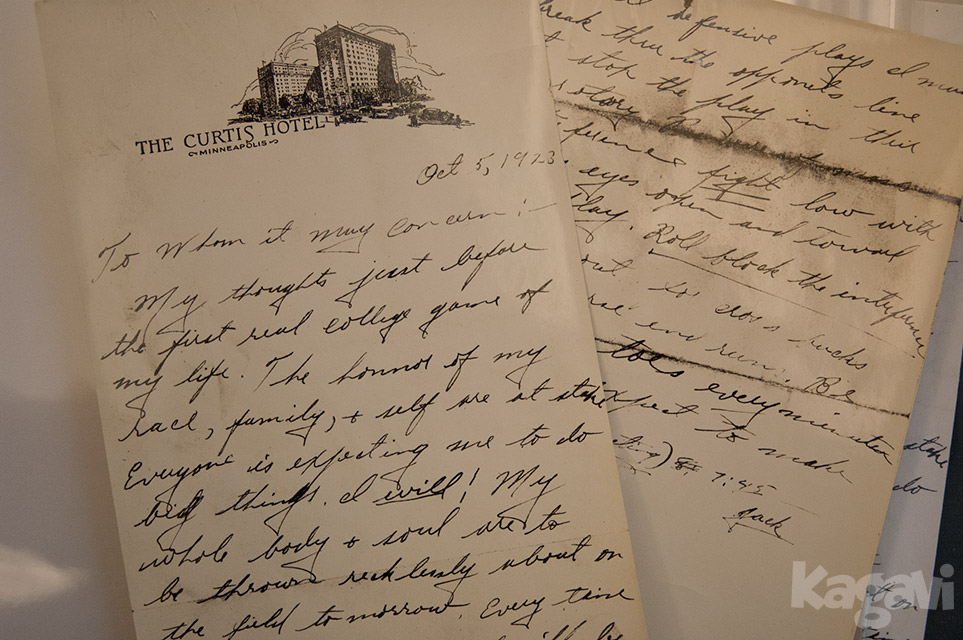 THE CURTIS HOTEL
MINNEAPOLIS
Oct 5, 1923.
To Whom it may concern:—
My thoughts just before
the first real college game of
my life. The honnor of my
race, family, + self are at stake
Everyone is expecting me to do
big things. I will! My
whole body + soul are to
be thrown recklessly about on
the field tomorrow. Every time
will be
defensive plays I must
break thru the opponets line
stop the play in their
fight low with
eyes open and toward
play. Roll block the interference
out to cross bucks
end runs. Be
toes every minute
expect to make
8 7:45
Jack
stake
do
on
Kagavi